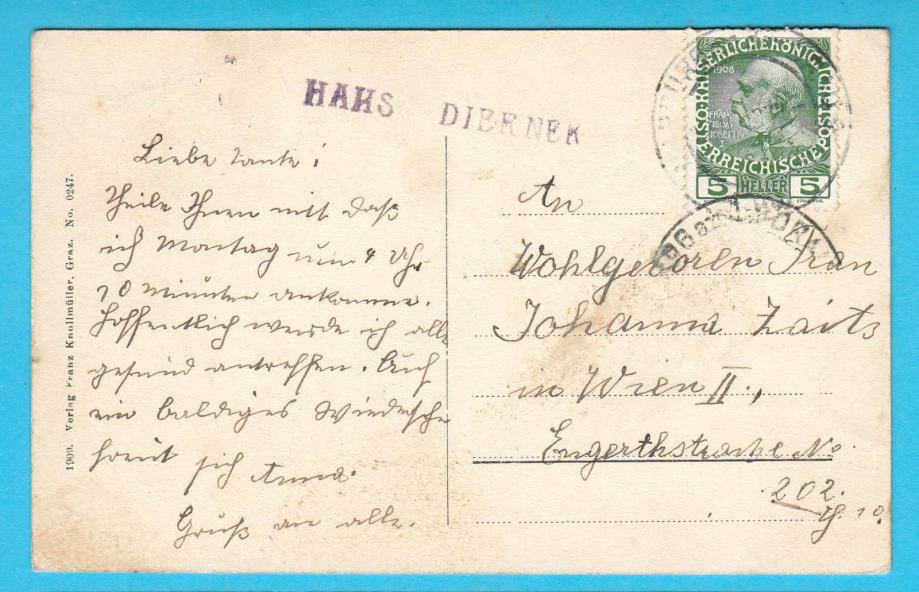 HAHS DIERNER
Liebe Tante!
Theile Ihnen mit daß
ich Montag um 4 Uhr
10 Minuten ankomme.
Hoffentlich werde ich alle
gesund antreffen. Auf
ein baldiges Wiedersehn
freut sich Anna.
Gruß an alle.
1909. Verlag Franz Knollmüller, Graz. No. 0247.
KAISERLICHE KÖNIGLICHE
ÖSTERREICHISCHE POST
1908
5 HELLER 5
An
Wohlgeboren Frau
Johanna Zaits
in Wien II.,
Engerthstrasse No.
202.
Th. 10